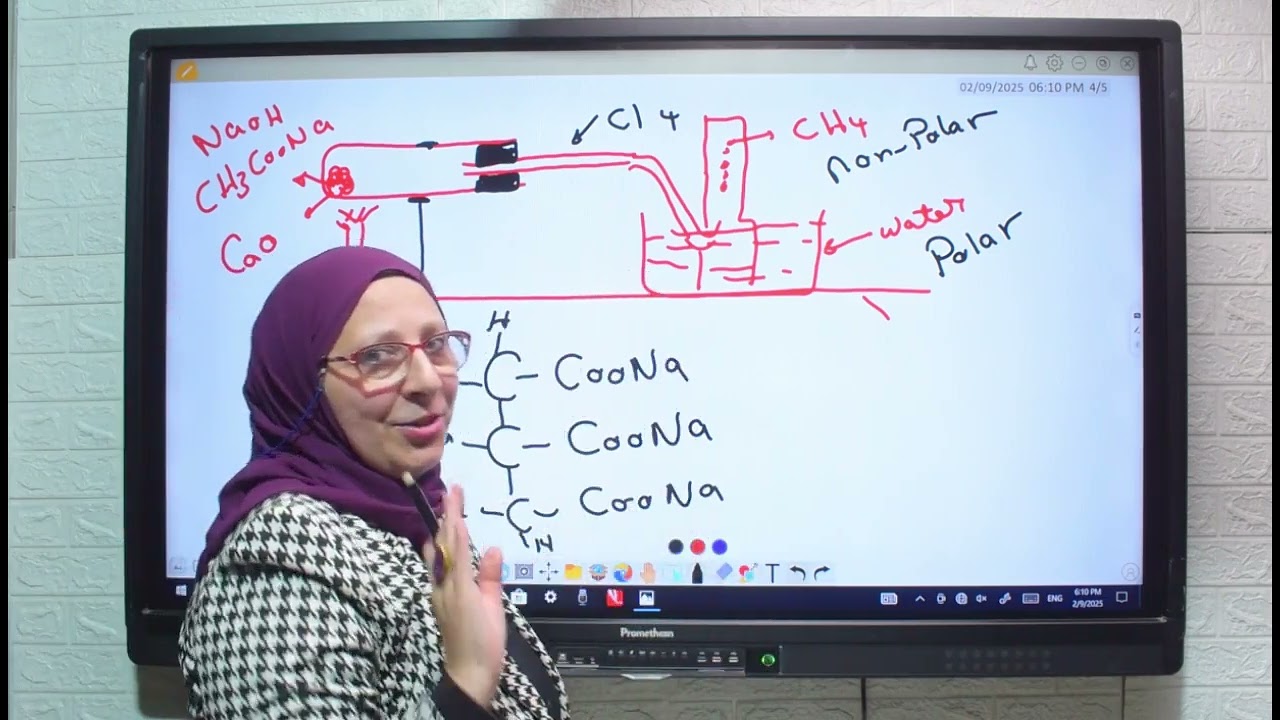 02/09/2025 06:10 PM 4/5
NaoH
CH3CooNa
Cao
Cl4
CH4
non-Polar
water
Polar
H
C - CooNa
C - CooNa
C - CooNa
H
T
ENG
6:10 PM
2/9/2025
Promethean